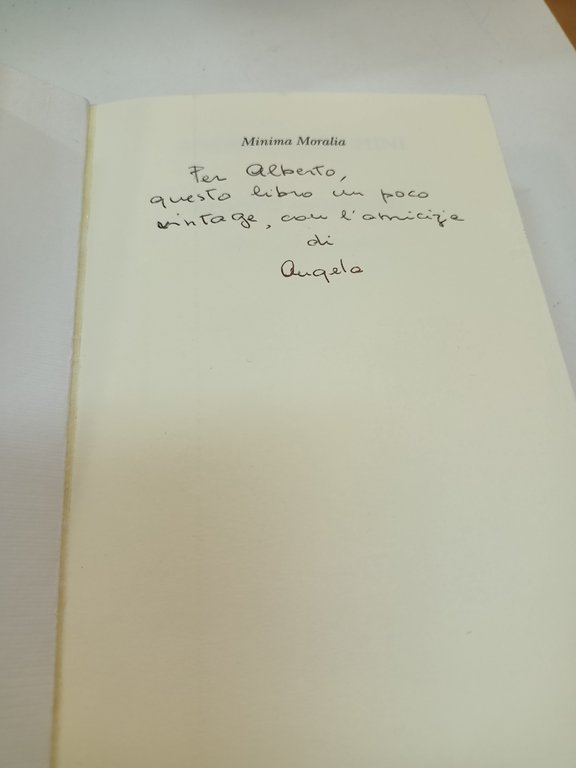 Minima Moralia
Per Alberto,
questo libro un poco
vintage, con l'amicizia
di
Angela